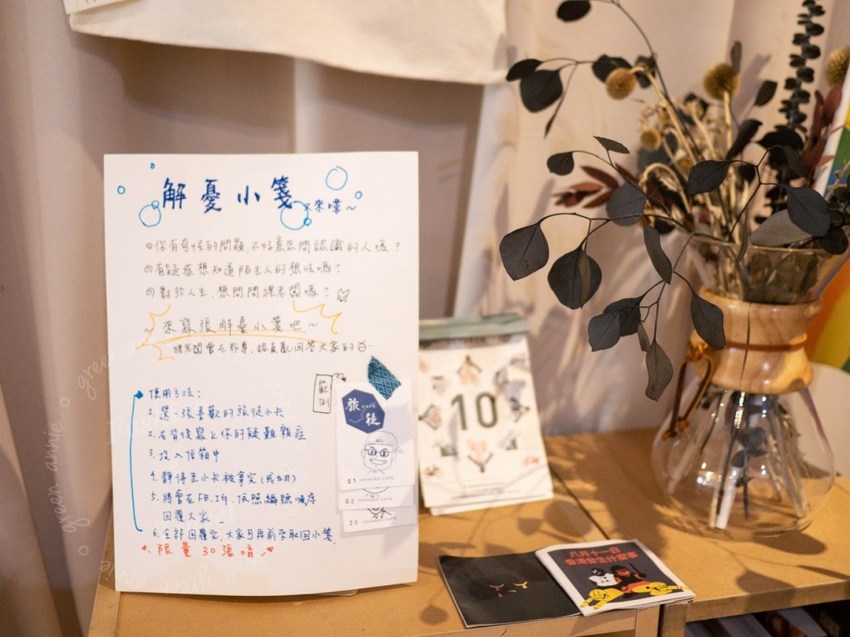 解憂小箋 來囉～
◎你有奇怪的問題,不好意思問認識的人嗎？
◎有疑惑想知道陌生人的想法嗎？
◎對於人生,想問問裡老闆嗎？
～來寫張解憂小箋吧～
認真亂回答大家的
使用方法：
1. 選一張喜歡的旅徒小卡
2. 在背後寫上你的疑難雜症
3. 投入信箱中
4. 靜待至小卡被拿完
5. 將會在 依照編號順序
回覆大家
6. 全部回覆完,大家可再前來取回小箋.
限量30張唷
範例
旅徒
01
02
10
八月十一日
香港發生什麼事
green annie